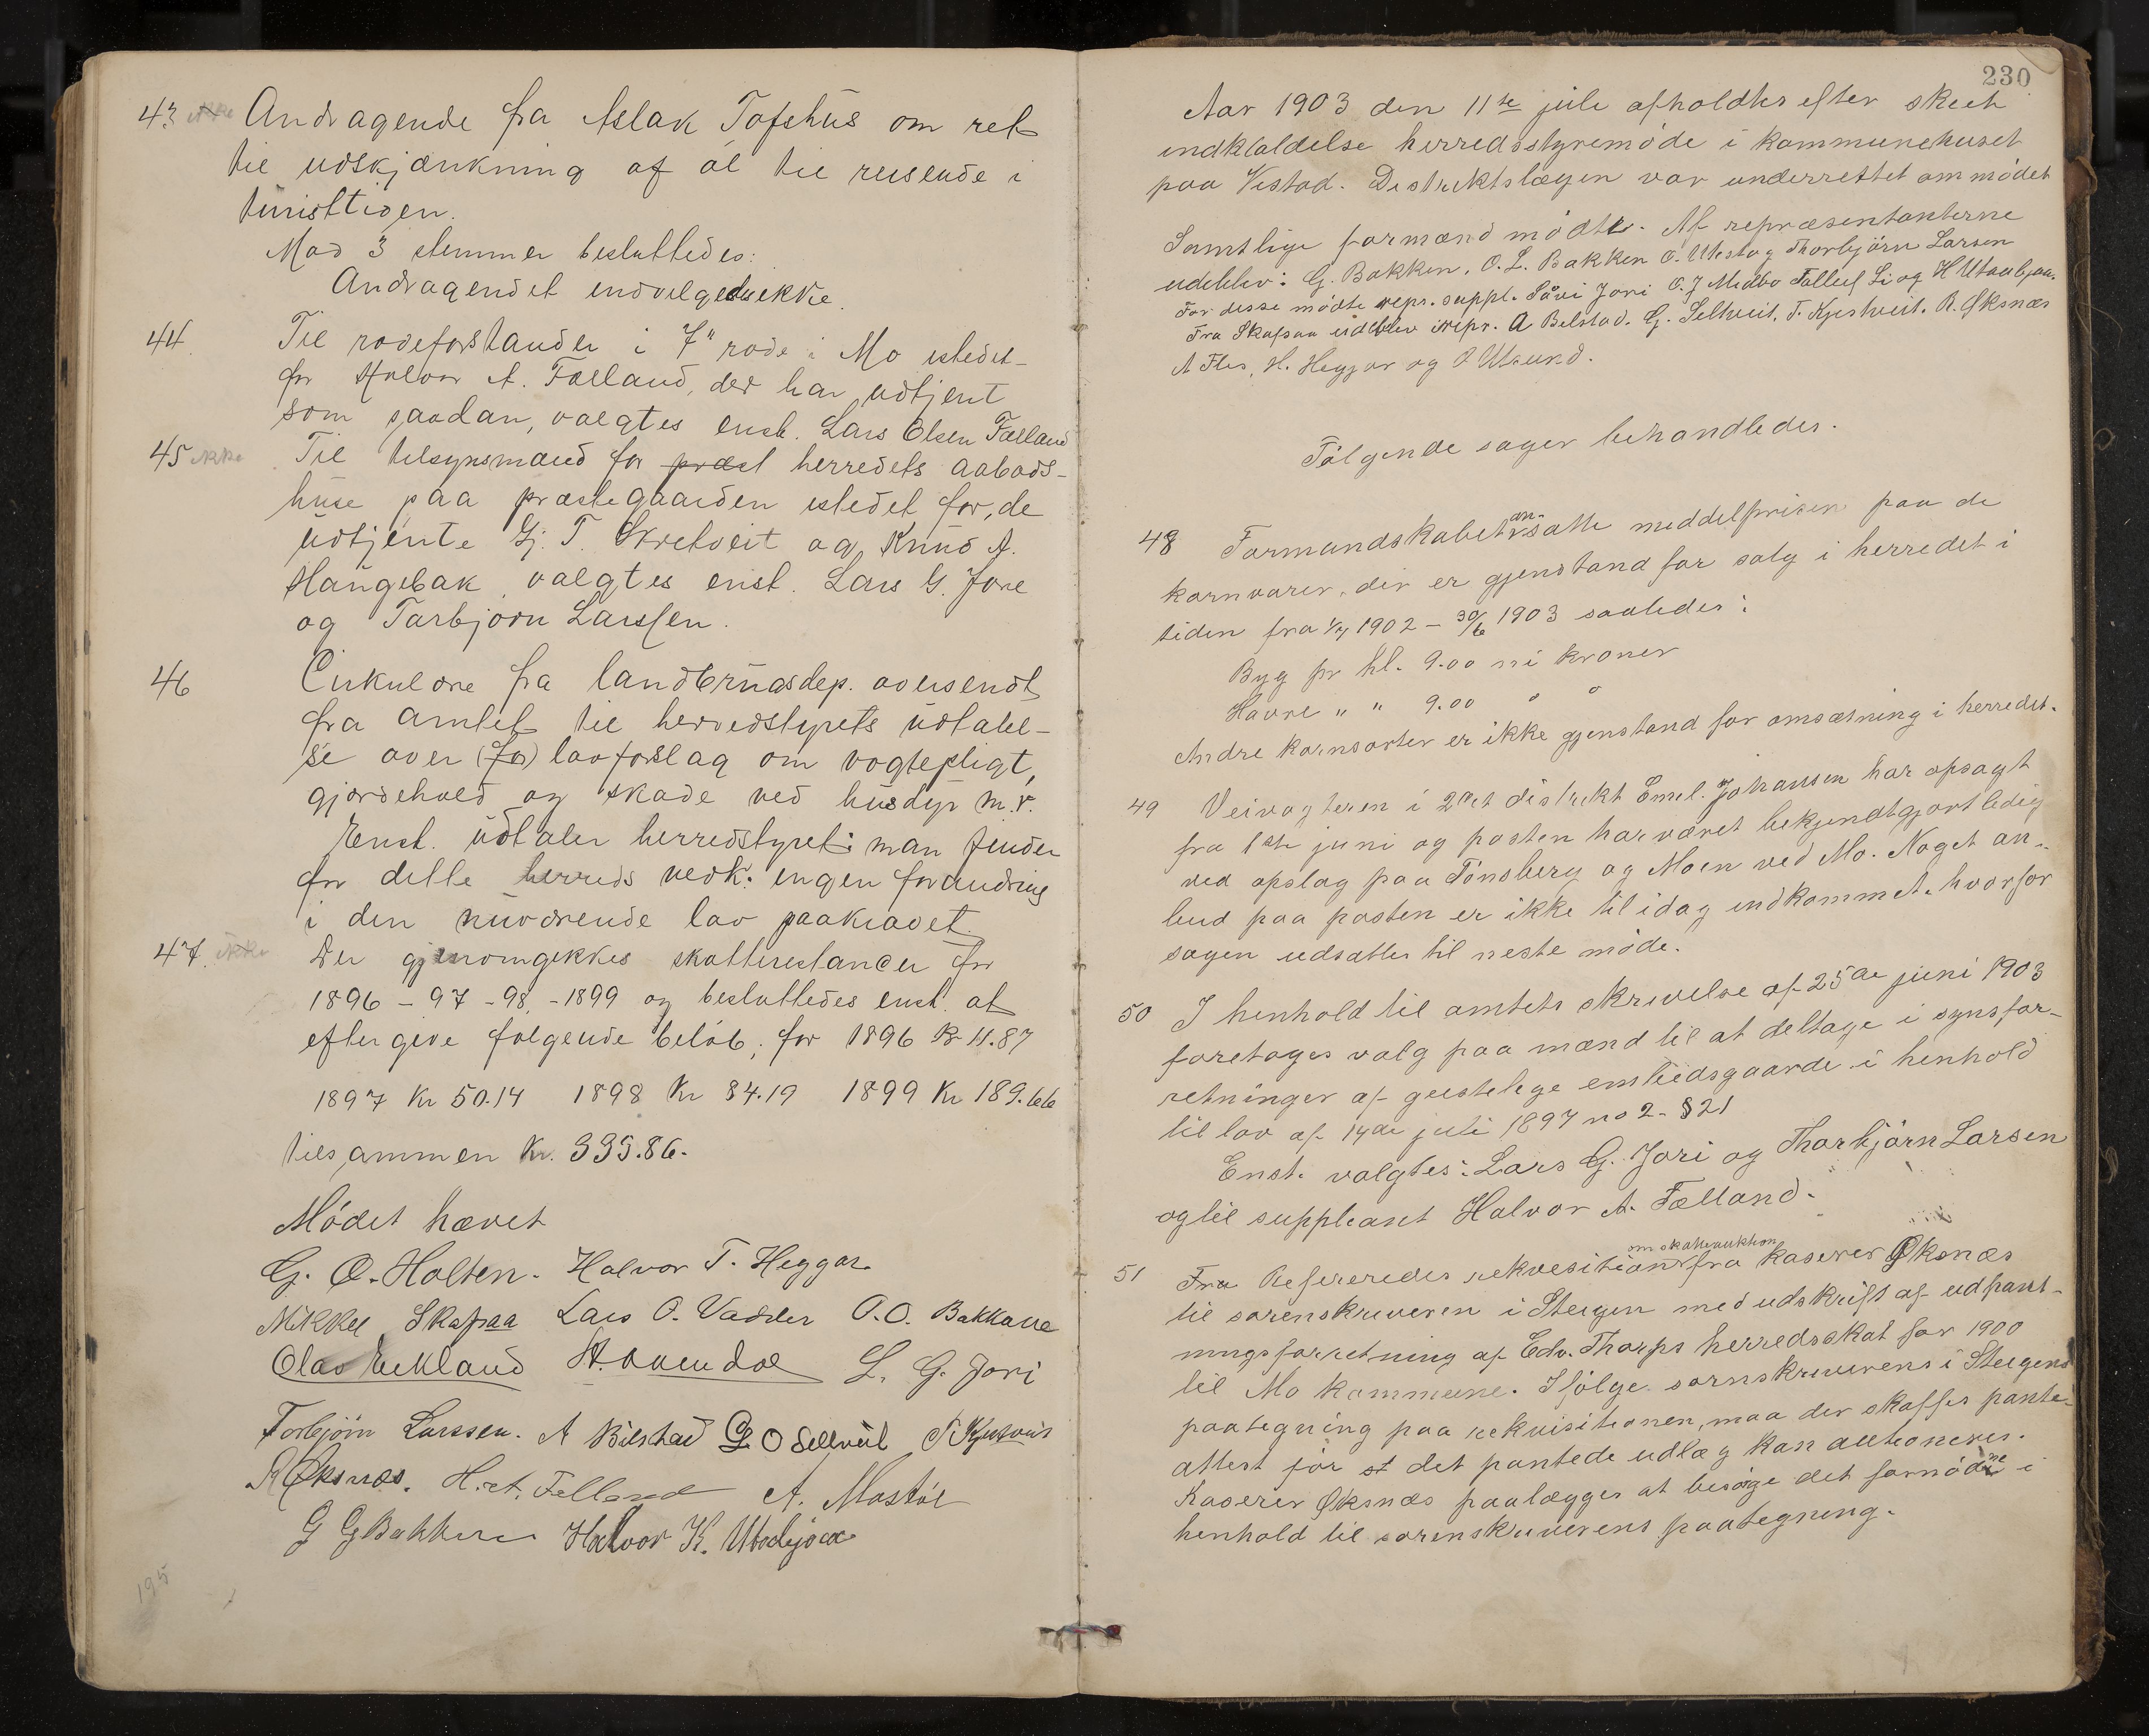 43 ikke Andragende fra Aslak Tofshus om ret
til udskjænkning af øl til reisende i
turisttiden.
Mod 3 stemmer besluttedes:
Andragendet indvilgedes ikke
44. Til rodeforstander i 7" rode i Mo istedet-
for Halvor A. Fælland, der har udtjent
som saadan, valgtes enst. Lars Olsen Fælland
45 ikke Til tilsynsmænd for præst herredets aabods-
huse paa præstegaarden istedet for, de
udtjente Gj. T. Skretveit og Knud A.
Haugebak valgtes enst. Lars G. Jore
og Tarbjørn Larssen.
46 Cirkulære fra landbrugsdep. oversendt
fra amtet til herredstyrets udtalel-
se over (for) lovforslag om vogtepligt,
gjærdehold og skade ved husdyr m.v.
Enst. udtaler herredstyret: man finder
for dette herreds vedk. ingen forandring
i den nuværende lov paakrævet.
47. ikke Der gjennomgikkes skatterestancer for
1896 - 97 - 98 - 1899 og besluttedes enst. at
eftergive følgende beløb; for 1896 Kr 11.87
1897 Kr 50.14 1898 Kr 84.19 1899 Kr 189.66
tilsammen Kr. 335.86.
Mødet hævet
G. O. Holten. Halvor T. Heggar.
Mikkel Skafsaa Lars O. Vadder O.O. Bakkane
Olav Eikland H. Ovendal L. G. Jori
Torbjörn Larssen. A Bilstad G O Seltveit
R Øksnæs. H. A. Felland A. Mostøl
G G Bakken Halvor K. Utabjoa
195
230
Aar 1903 den 11te juli afholdtes efter skeet
indkaldelse herredsstyremöde i kommunehuset
paa Vistad. Distriktslægen var underrettet om mödet
Samtlige formænd mödte. Af repræsentanterne
udeblev: G. Bakken, O. L. Bakken O. Utistog Thorbjörn Larsen
For disse mödte repr. suppl. Såvi Jori O. J Midbö Talluf Li og H Utaabjoa.
Fra Skafsaa udeblev repr. A Belstad. G. Seltveit, T. Kjestveit. R. Øksnæs
A Fles, H. Heggar og O Utsund.
Fölgende sager behandledes.
48 Formandskabet an-satte middelprisen paa de
kornvarer, der er gjenstand for salg i herredet i
tiden fra 1/7 1902 - 30/6 1903 saaledes:
Byg pr hl. 9.00 ni kroner
Havre " " 9.00 " "
Andre kornsorter er ikke gjenstand for omsætning i herredet.
49 Veivogteren i 2det distrikt Emil. Johansen har opsagt
fra 1ste juni og posten har været bekjendtgjort ledig
ved opslag paa Tönsberg og Moen ved Mo. Noget an-
bud paa posten er ikke til idag indkommet. hvorfor
sagen udsattes til neste möde.
50 I henhold til amtets skrivelse af 25de juni 1903
foretages valg paa mænd til at deltage i synsfor-
retninger af geistelige embedsgaarde i henhold
til lov af 14de juli 1897 no 2 - §21
Enst. valgtes: Lars G. Jori og Thorbjörn Larsen
og til suppleant Halvor A. Fælland.
51 Fra Refereredes rekvesition om skatteauktion fra kaserer Øksnæs
til sorenskriveren i Steigen med udskrift af udpant-
ningsforretning af Edv. Thorps herredsskat for 1900
til Mo kommune. Ifölge sornskriverens i Steigens
paategning paa rekvisitionen, maa der skaffes pante-
attest för at det pantede udlæg kan auctioneres.
Kaserer Øksnæs paalægges at besörge det fornödne i
henhold til sorenskriverens paategning.